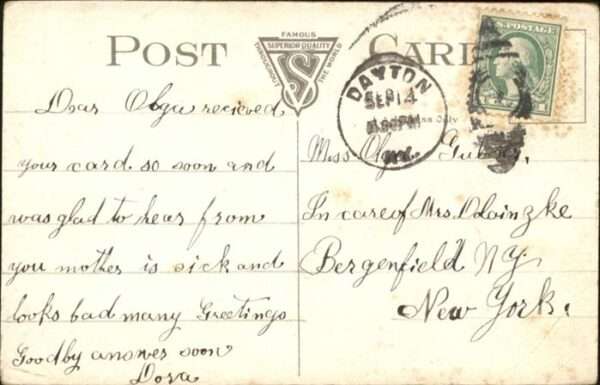 POST CARD
FAMOUS
SUPERIOR QUALITY
THROUGHOUT THE WORLD
S
DAYTON
SEP 14
PM
N.Y.
U.S. POSTAGE
Dear Olga recieved
your card so soon and
was glad to hear from
you mother is sick and
looks bad many Greetings
Goodby answer soon
Dora
Miss Olga
In care of Mrs.
Bergenfield N.Y.
New York.